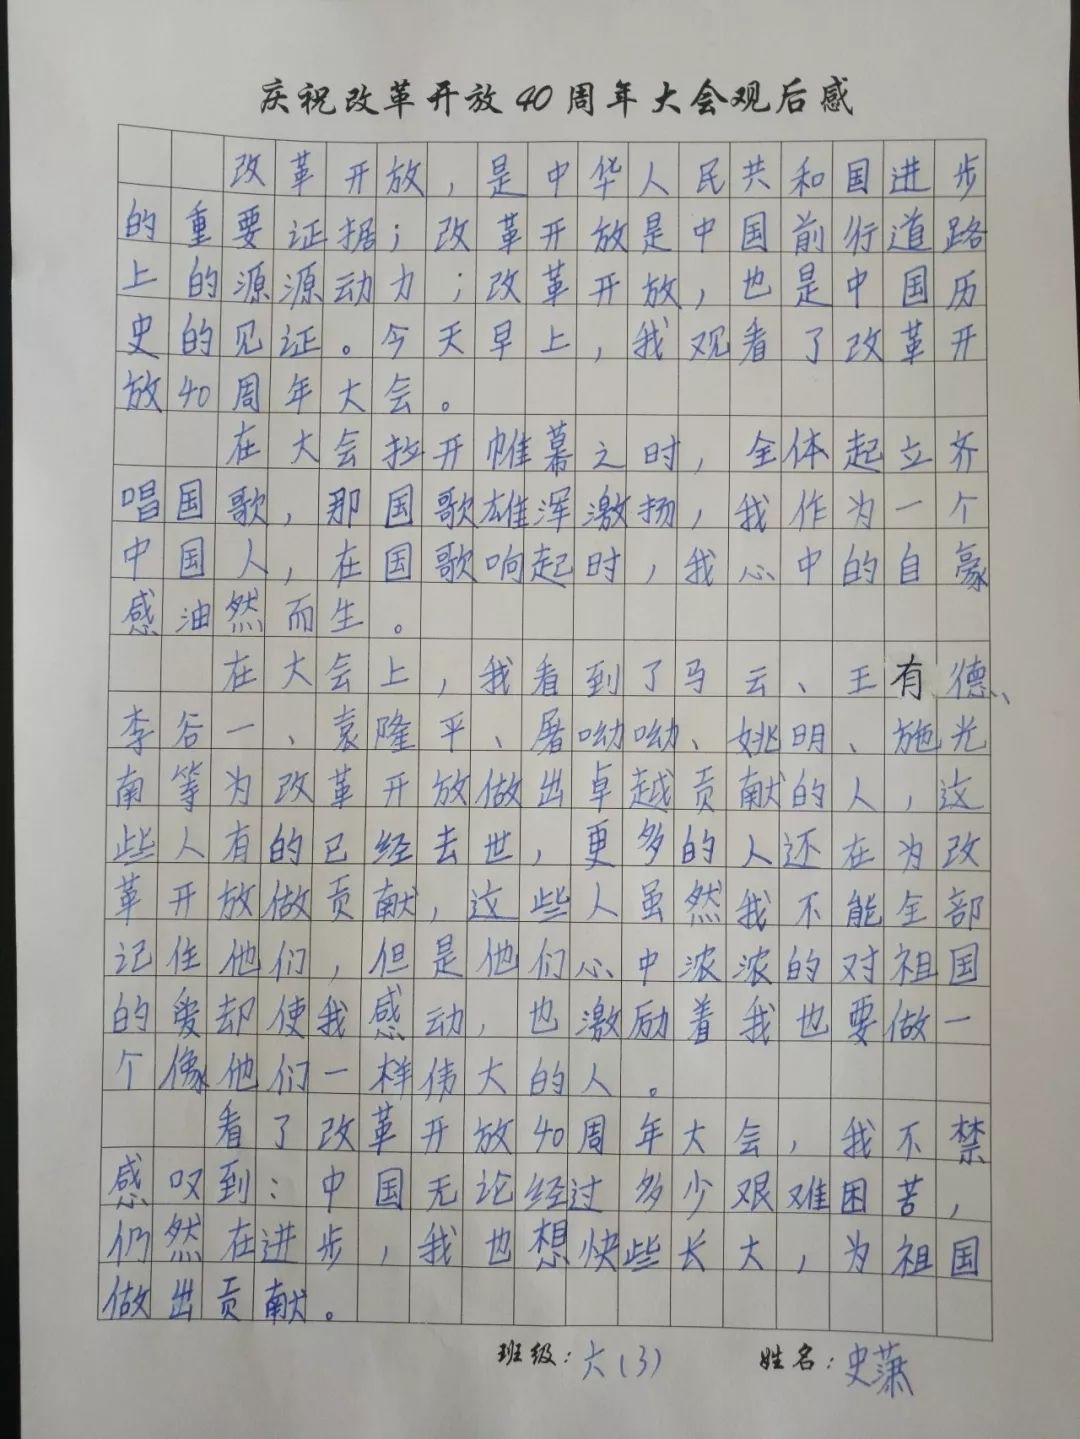 庆祝改革开放40周年大会观后感
改革开放，是中华人民共和国进步
的重要证据；改革开放是中国前行道路
上的源源动力；改革开放，也是中国历
史的见证。今天早上，我观看了改革开
放40周年大会。
在大会拉开帷幕之时，全体起立齐
唱国歌，那国歌雄浑激扬，我作为一个
中国人，在国歌响起时，我心中的自豪
感油然而生。
在大会上，我看到了马云、王有德、
李谷一、袁隆平、屠呦呦、姚明、施光
南等为改革开放做出卓越贡献的人，这
些人有的已经去世，更多的人还在为改
革开放做贡献，这些人虽然我不能全部
记住他们，但是他们心中浓浓的对祖国
的爱却使我感动，也激励着我也要做一
个像他们一样伟大的人。
看了改革开放40周年大会，我不禁
感叹到：中国无论经过多少艰难困苦，
仍然在进步，我也想快些长大，为祖国
做出贡献。
班级：大(3) 姓名：史萧